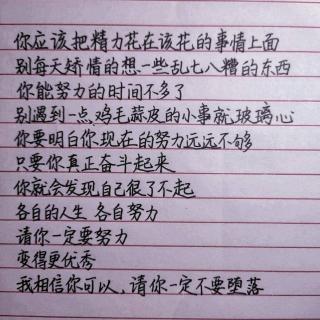 你应该把精力花在该花的事情上面
别每天矫情的想一些乱七八糟的东西
你能努力的时间不多了
别遇到一点鸡毛蒜皮的小事就玻璃心
你要明白你现在的努力远远不够
只要你真正奋斗起来
你就会发现自己很了不起
各自的人生 各自努力
请你一定要努力
变得更优秀
我相信你可以、请你一定不要堕落